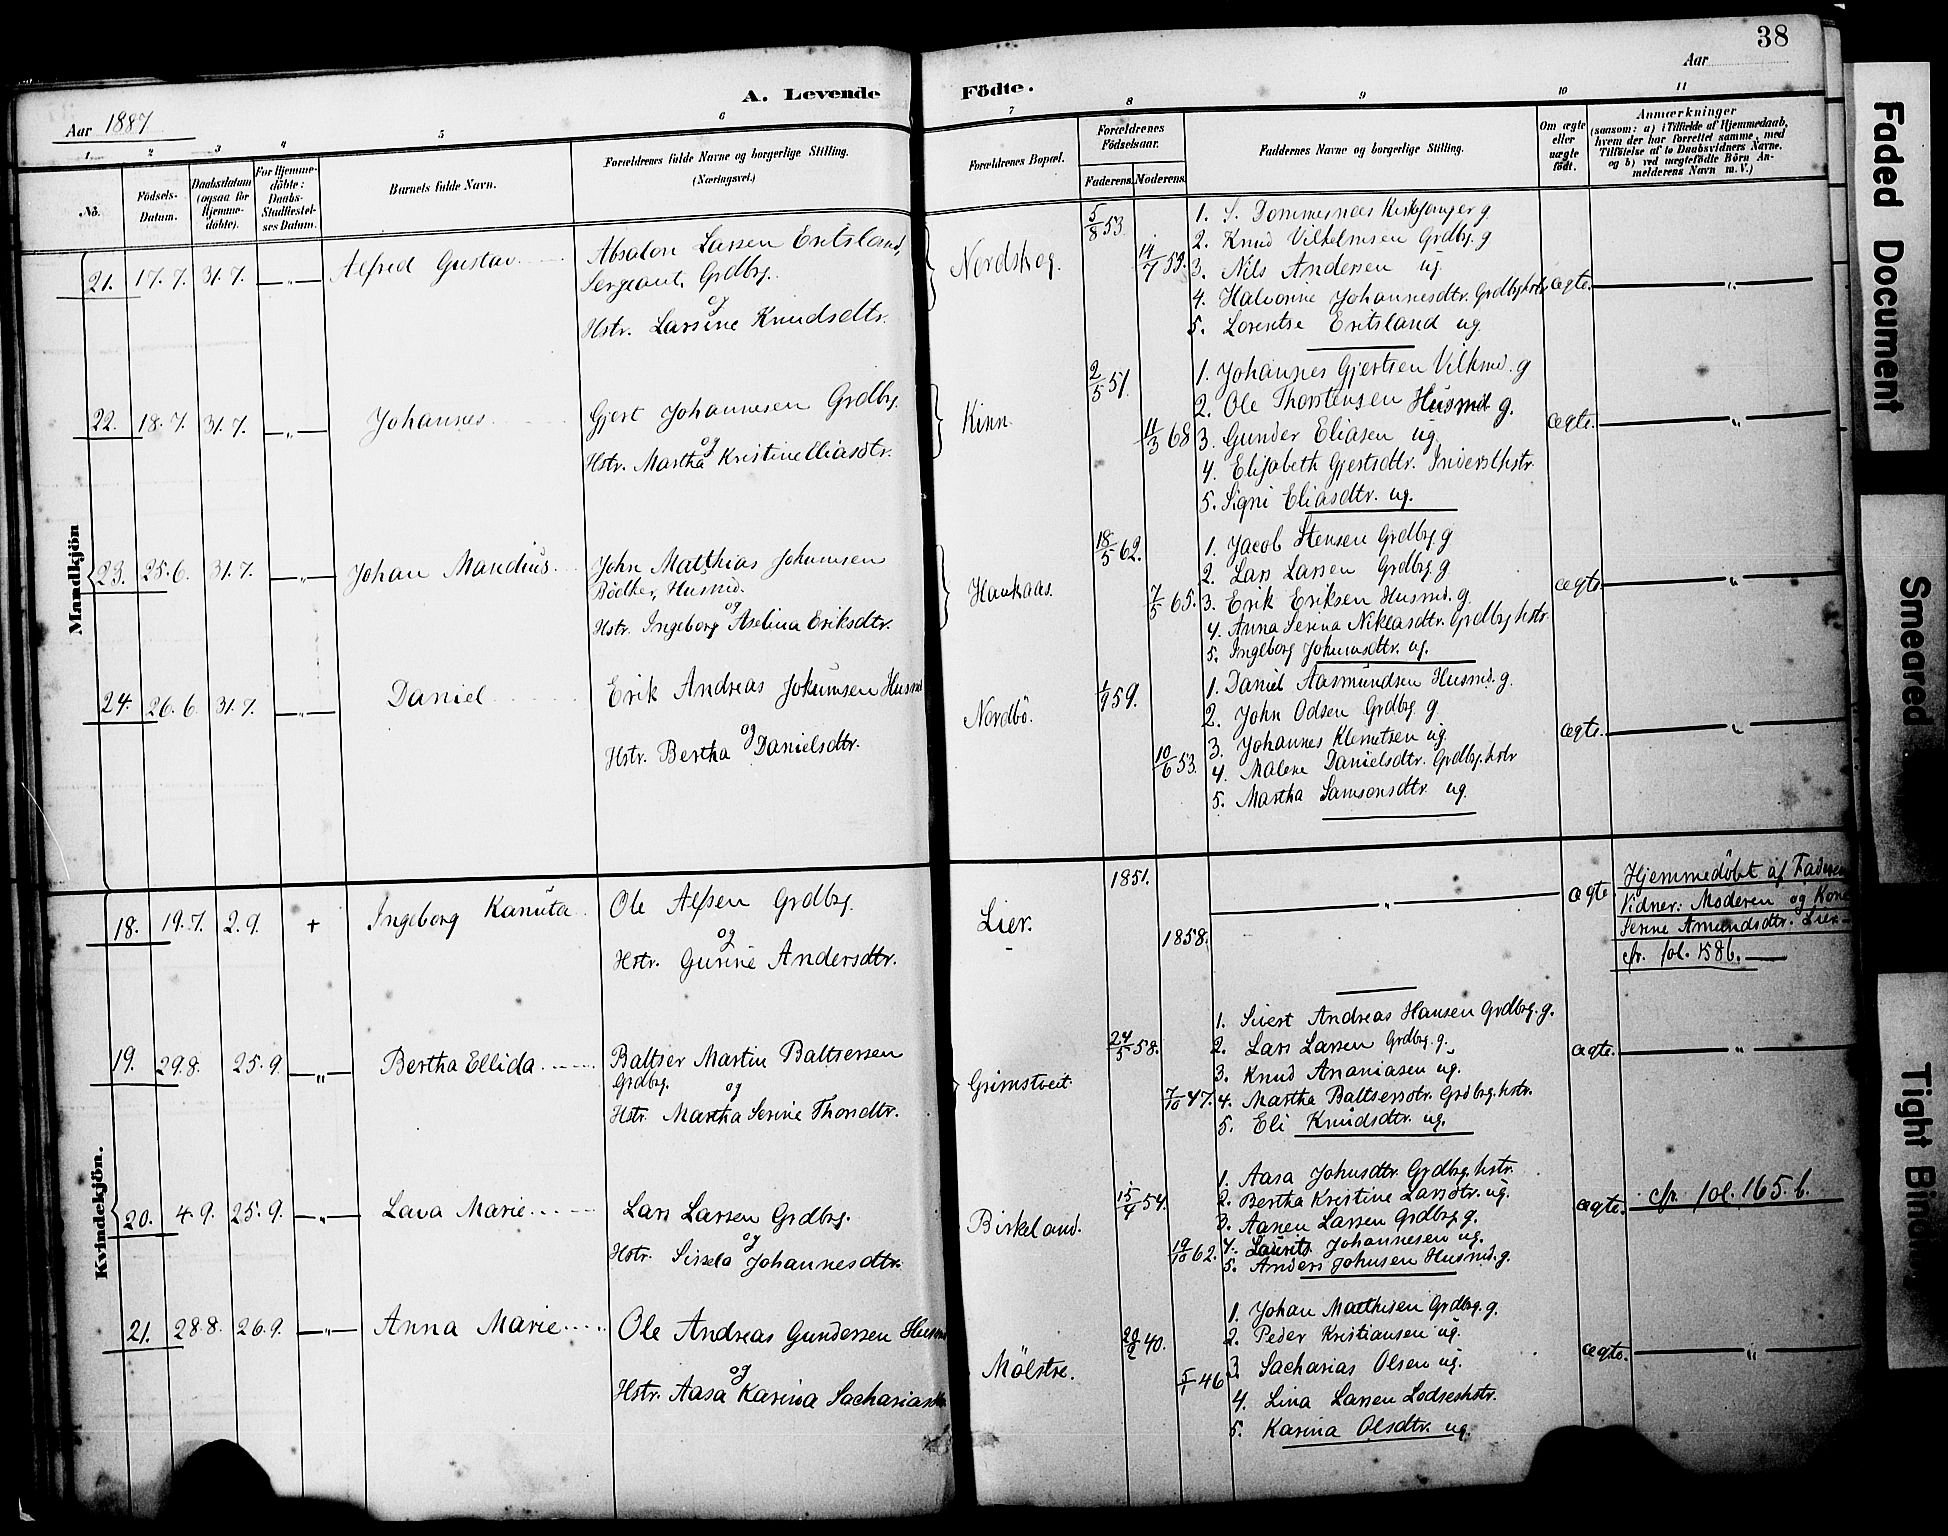 38
A. Levende Födte.
Aar 1887
Aar
1 2 3 4 5 6 7 8 9 10 11
No.
Födsels-Datum.
Daabsdatum (ogsaa for Hjemme-döbte).
For Hjemme-döbte: Daabs-Stadfæstel-ses Datum.
Barnets fulde Navn.
Forældrenes fulde Navne og borgerlige Stilling.
(Næringsvei.)
Forældrenes Bopæl.
Forældrenes Födselsaar.
Faderens. Moderens.
Faddernes Navne og borgerlige Stilling.
Om ægte eller uægte födt.
Anmærkninger
(saasom: a) i Tilfælde af Hjemmedaab,
hvem der har forrettet samme, med
Tilföielse af to Daabsvidners Navne,
og b) ved uægtefödte Börn An-
melderens Navn m. V.)
Mandkjön
21. 17.7. 31.7. — „ — Alfred Gustav
Absalon Larsen Eritsland,
Sergeant, Grdbrg.
og
Hstr. Larsine Knudsdtr.
Nordskog.
5/8 53.
14/7 59.
1. S. Dommesnes Kirkesanger g.
2. Knud Vilhelmsen Grdbrg. g
3. Nils Andersen ug.
4. Halvorine Johannesdtr. Grdbrghstr.
5. Lorentse Eritsland ug.
ægte. — „ —
22. 18.7. 31.7. — „ — Johannes
Gjert Johannesen Grdbrg.
og
Hstr. Martha Kristine Eliasdtr.
Kinn.
2/5 51.
11/3 68
1. Johannes Gjertsen Vilksmd. g
2. Ole Thorstensen Husmd g.
3. Gunder Eliasen ug.
4. Elisabeth Gjertsdtr. Inderslhstr.
5. Signi Eliasdtr. ug.
ægte. — „ —
23. 25.6. 31.7. — „ — Johan Mandius
John Matthias Johnnsen
Bödker, Husmd.
og
Hstr. Ingeborg Aselina Eriksdtr.
Haukaas.
18/5 62.
7/5 65.
1. Jacob Stensen Grdbrg g
2. Lars Larsen Grdbrg g
3. Erik Eriksen Husmd. g
4. Anna Serina Niklasdtr. Grdbrghstr
5. Ingeborg Johnnsdtr. ug.
ægte. — „ —
24. 26.6. 31.7. — „ — Daniel
Erik Andreas Jokumsen Husmd
og
Hstr. Bertha Danielsdtr.
Nordbö.
1/9 59.
10/6 53.
1. Daniel Aasmundsen Husmd. g.
2. John Odsen Grdbrg. g
3. Johannes Klemetsen ug.
4. Malene Danielsdtr. Grdbrg.hstr
5. Martha Samsonsdtr. ug.
ægte. — „ —
Kvindekjön.
18. 19.7. 2.9. + Ingeborg Kanuta
Ole Alfsen Grdbrg.
og
Hstr. Gurine Andersdtr.
Lier.
1851.
1858.
— „ —
ægte
Hjemmedöbt af Faderen
Vidner: Moderen og Kone
Serine Amundsdtr. Lier.—
cfr. fol. 158b.
19. 29.8. 25.9. — „ — Bertha Ellida
Baltser Martin Baltsersen
Grdbrg.
og
Hstr. Martha Serine Thorsdtr.
Grimstveit.
24/5 58.
7/10 47.
1. Sivert Andreas Hansen Grdbrg. g.
2. Lars Larsen Grdbrg. g.
3. Knud Ananiasen ug.
4. Martha Baltsersdtr. Grdbrg.hstr.
5. Eli Knudsdtr. ug.
ægte. — „ —
20. 4.9. 25.9. — „ — Lava Marie
Lars Larsen Grdbrg.
og
Hstr. Sissela Johannesdtr.
Birkeland.
15/4 54.
19/10 62.
1. Aasa Johnsdtr. Grdbrg. hstr.
2. Bertha Kristine Larsdtr. ug.
3. Aanen Larsen Grdbrg g.
4. Laurits Johannesen ug.
5. Anders Johnsen Husmd. g.
ægte. cfr. fol. 165.b.
21. 28.8. 26.9. — „ — Anna Marie
Ole Andreas Gundersen Husmd
og
Hstr. Aasa Karina Sachariasdtr
Mölstre.
5/1 46
1. Johan Mathisen Grdbrg. g.
2. Peder Kristiansen ug.
3. Sacharias Olsen ug.
4. Lina Larsen Lodseshstr.
5. Karina Olsdtr. ug.
ægte. — „ —
Faded Document
Smeared
Tight Bindin